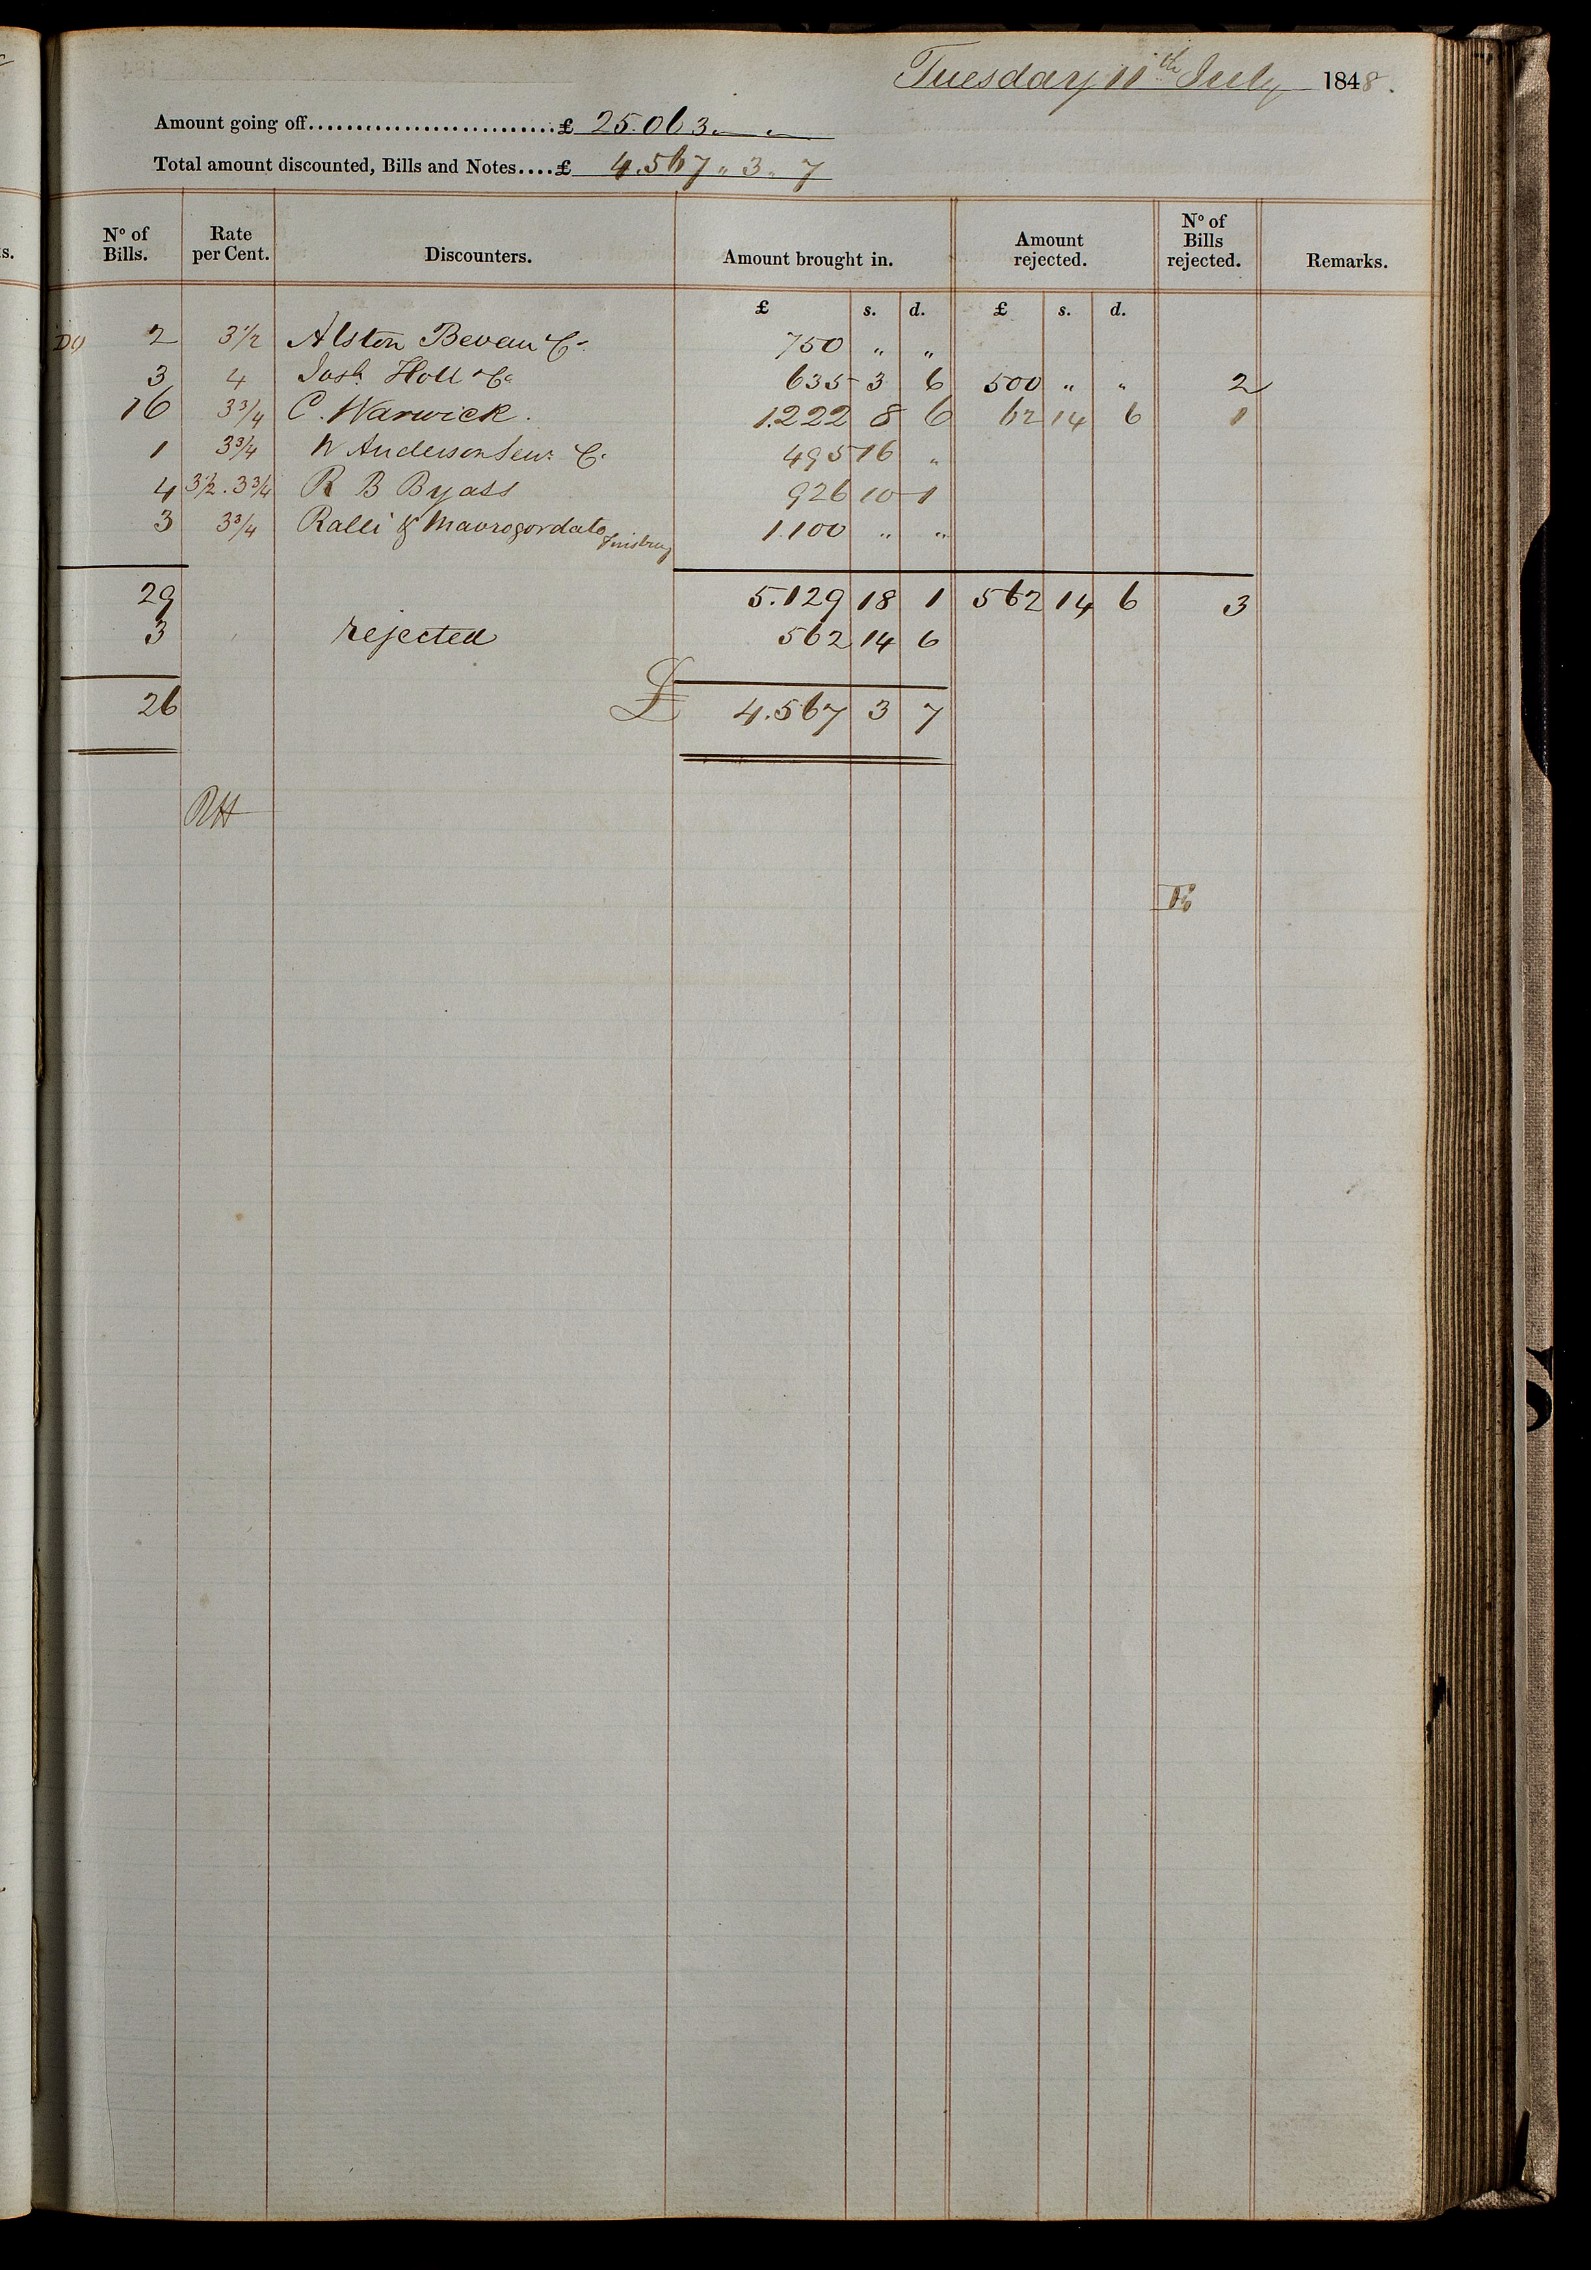 Tuesday 11th July 1848.
Amount going off...........................£ 25.063 " "
Total amount discounted, Bills and Notes....£ 4.567 " 3 " 7
No of Bills. Rate per Cent. Discounters. Amount brought in. Amount rejected. No of Bills rejected. Remarks.
£ s. d. £ s. d.
2 3½ Alston Bevan & Co. 750 " "
3 4 Josh. Holl & Co 635 3 6 500 " " 2
16 3¾ C. Warwick. 1.222 8 6 62 14 6 1
1 3¾ W Anderson Senr & Co. 495 16 "
4 3½. 3¾ R B Byass 926 10 1
3 3¾ Ralli & Mavrogordato Finsbury 1.100 " "
29 5.129 18 1 562 14 6 3
3 rejected 562 14 6
26 £ 4.567 3 7
RH